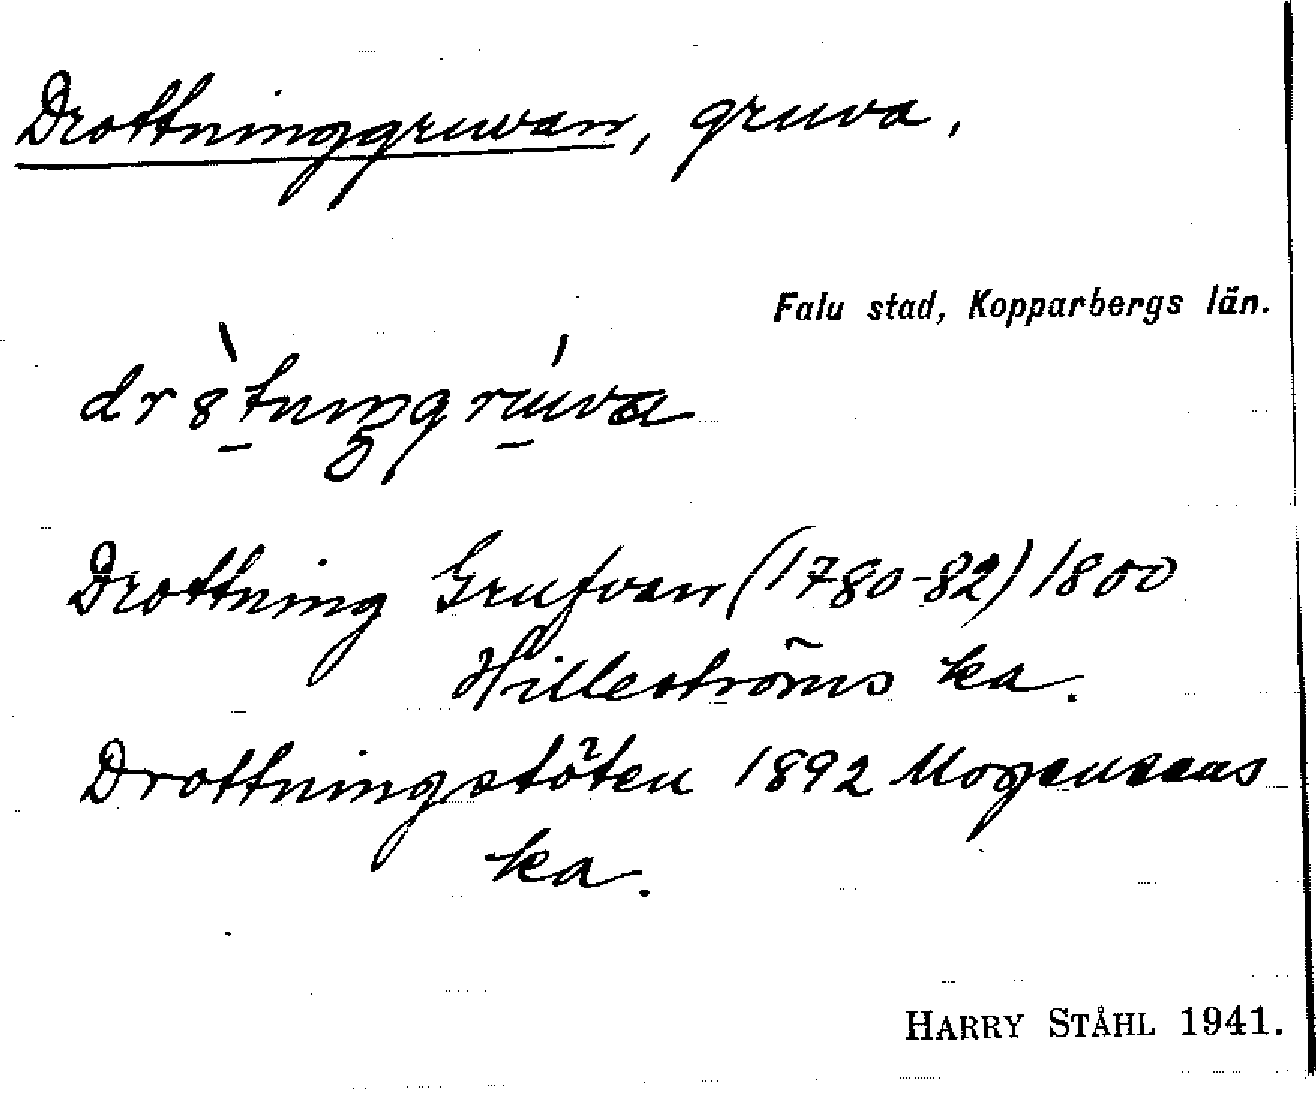 Drottninggruvan, gruva,
Falu stad, Kopparbergs län.
Drottning Grufvan (1780-82) 1800
Hilleströms ka.
Drottningstöten 1892 Mogensens
ka.
HARRY STÅHL 1941.